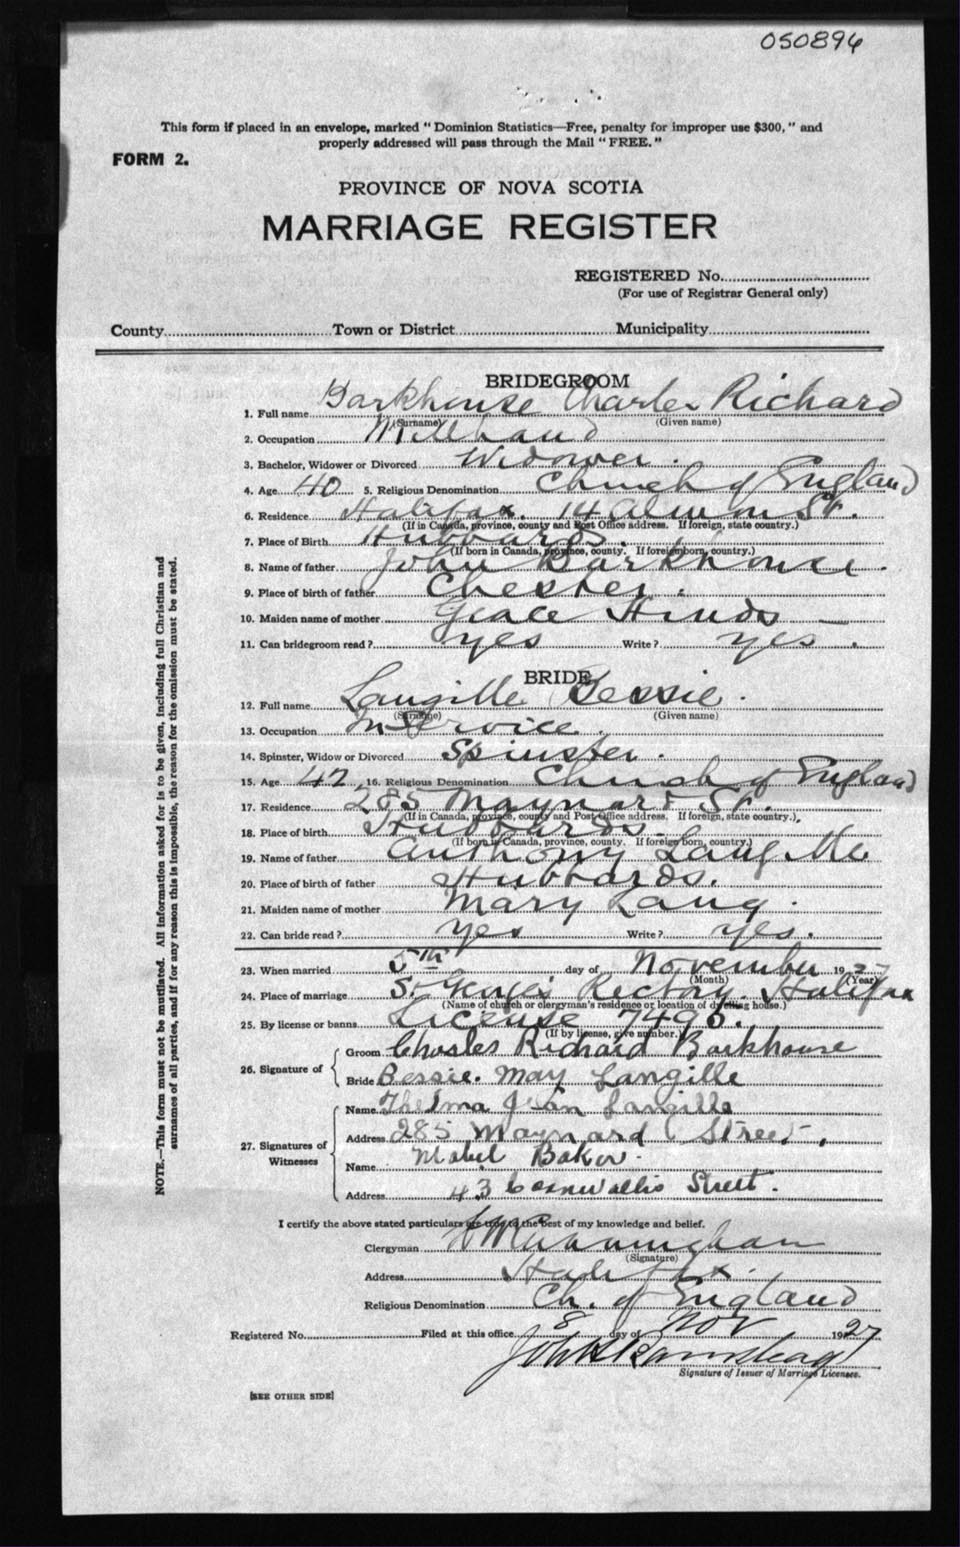 050896
This form if placed in an envelope, marked " Dominion Statistics—Free, penalty for improper use $300, " and
properly addressed will pass through the Mail " FREE. "
FORM 2.
PROVINCE OF NOVA SCOTIA
MARRIAGE REGISTER
REGISTERED No.
(For use of Registrar General only)
County Town or District Municipality
BRIDEGROOM
1. Full name Barkhouse Charles Richard
(Surname) (Given name)
2. Occupation Millhand
3. Bachelor, Widower or Divorced Widower.
4. Age 40 5. Religious Denomination Church of England
6. Residence Halifax. 14 Almon St.
(If in Canada, province, county and Post Office address. If foreign, state country.)
7. Place of Birth Hubbards.
(If born in Canada, province, county. If foreign born, country.)
8. Name of father John Barkhouse.
9. Place of birth of father Chester.
10. Maiden name of mother Grace Hinds —
11. Can bridegroom read? yes Write? yes.
BRIDE
12. Full name Langille Bessie.
(Surname) (Given name)
13. Occupation In Service.
14. Spinster, Widow or Divorced Spinster.
15. Age 42 16. Religious Denomination Church of England
17. Residence 285 Maynard St.
(If in Canada, province, county and Post Office address. If foreign, state country.)
18. Place of birth Hubbards.
(If born in Canada, province, county. If foreign born, country.)
19. Name of father Anthony Langille
20. Place of birth of father Hubbards.
21. Maiden name of mother Mary Lang.
22. Can bride read? yes Write? yes.
23. When married 5th day of November 1927
(Month) (Year)
24. Place of marriage St George's Rectory. Halifax
(Name of church or clergyman's residence or location of dwelling house.)
25. By license or banns License 7495.
(If by license, give number.)
26. Signature of
Groom Charles Richard Barkhouse
Bride Bessie. May Langille
27. Signatures of Witnesses
Name Thelma Jean Langille
Address 285 Maynard Street.
Name Mabel Baker.
Address 43 Cornwallis Street.
I certify the above stated particulars are true to the best of my knowledge and belief.
Clergyman
(Signature)
Address Halifax.
Religious Denomination Ch. of England
Registered No. Filed at this office 8 day of Nov 1927
Signature of Issuer of Marriage Licenses.
[SEE OTHER SIDE]
NOTE.—This form must not be mutilated. All information asked for is to be given, including full Christian and
surnames of all parties, and if for any reason this is impossible, the reason for the omission must be stated.